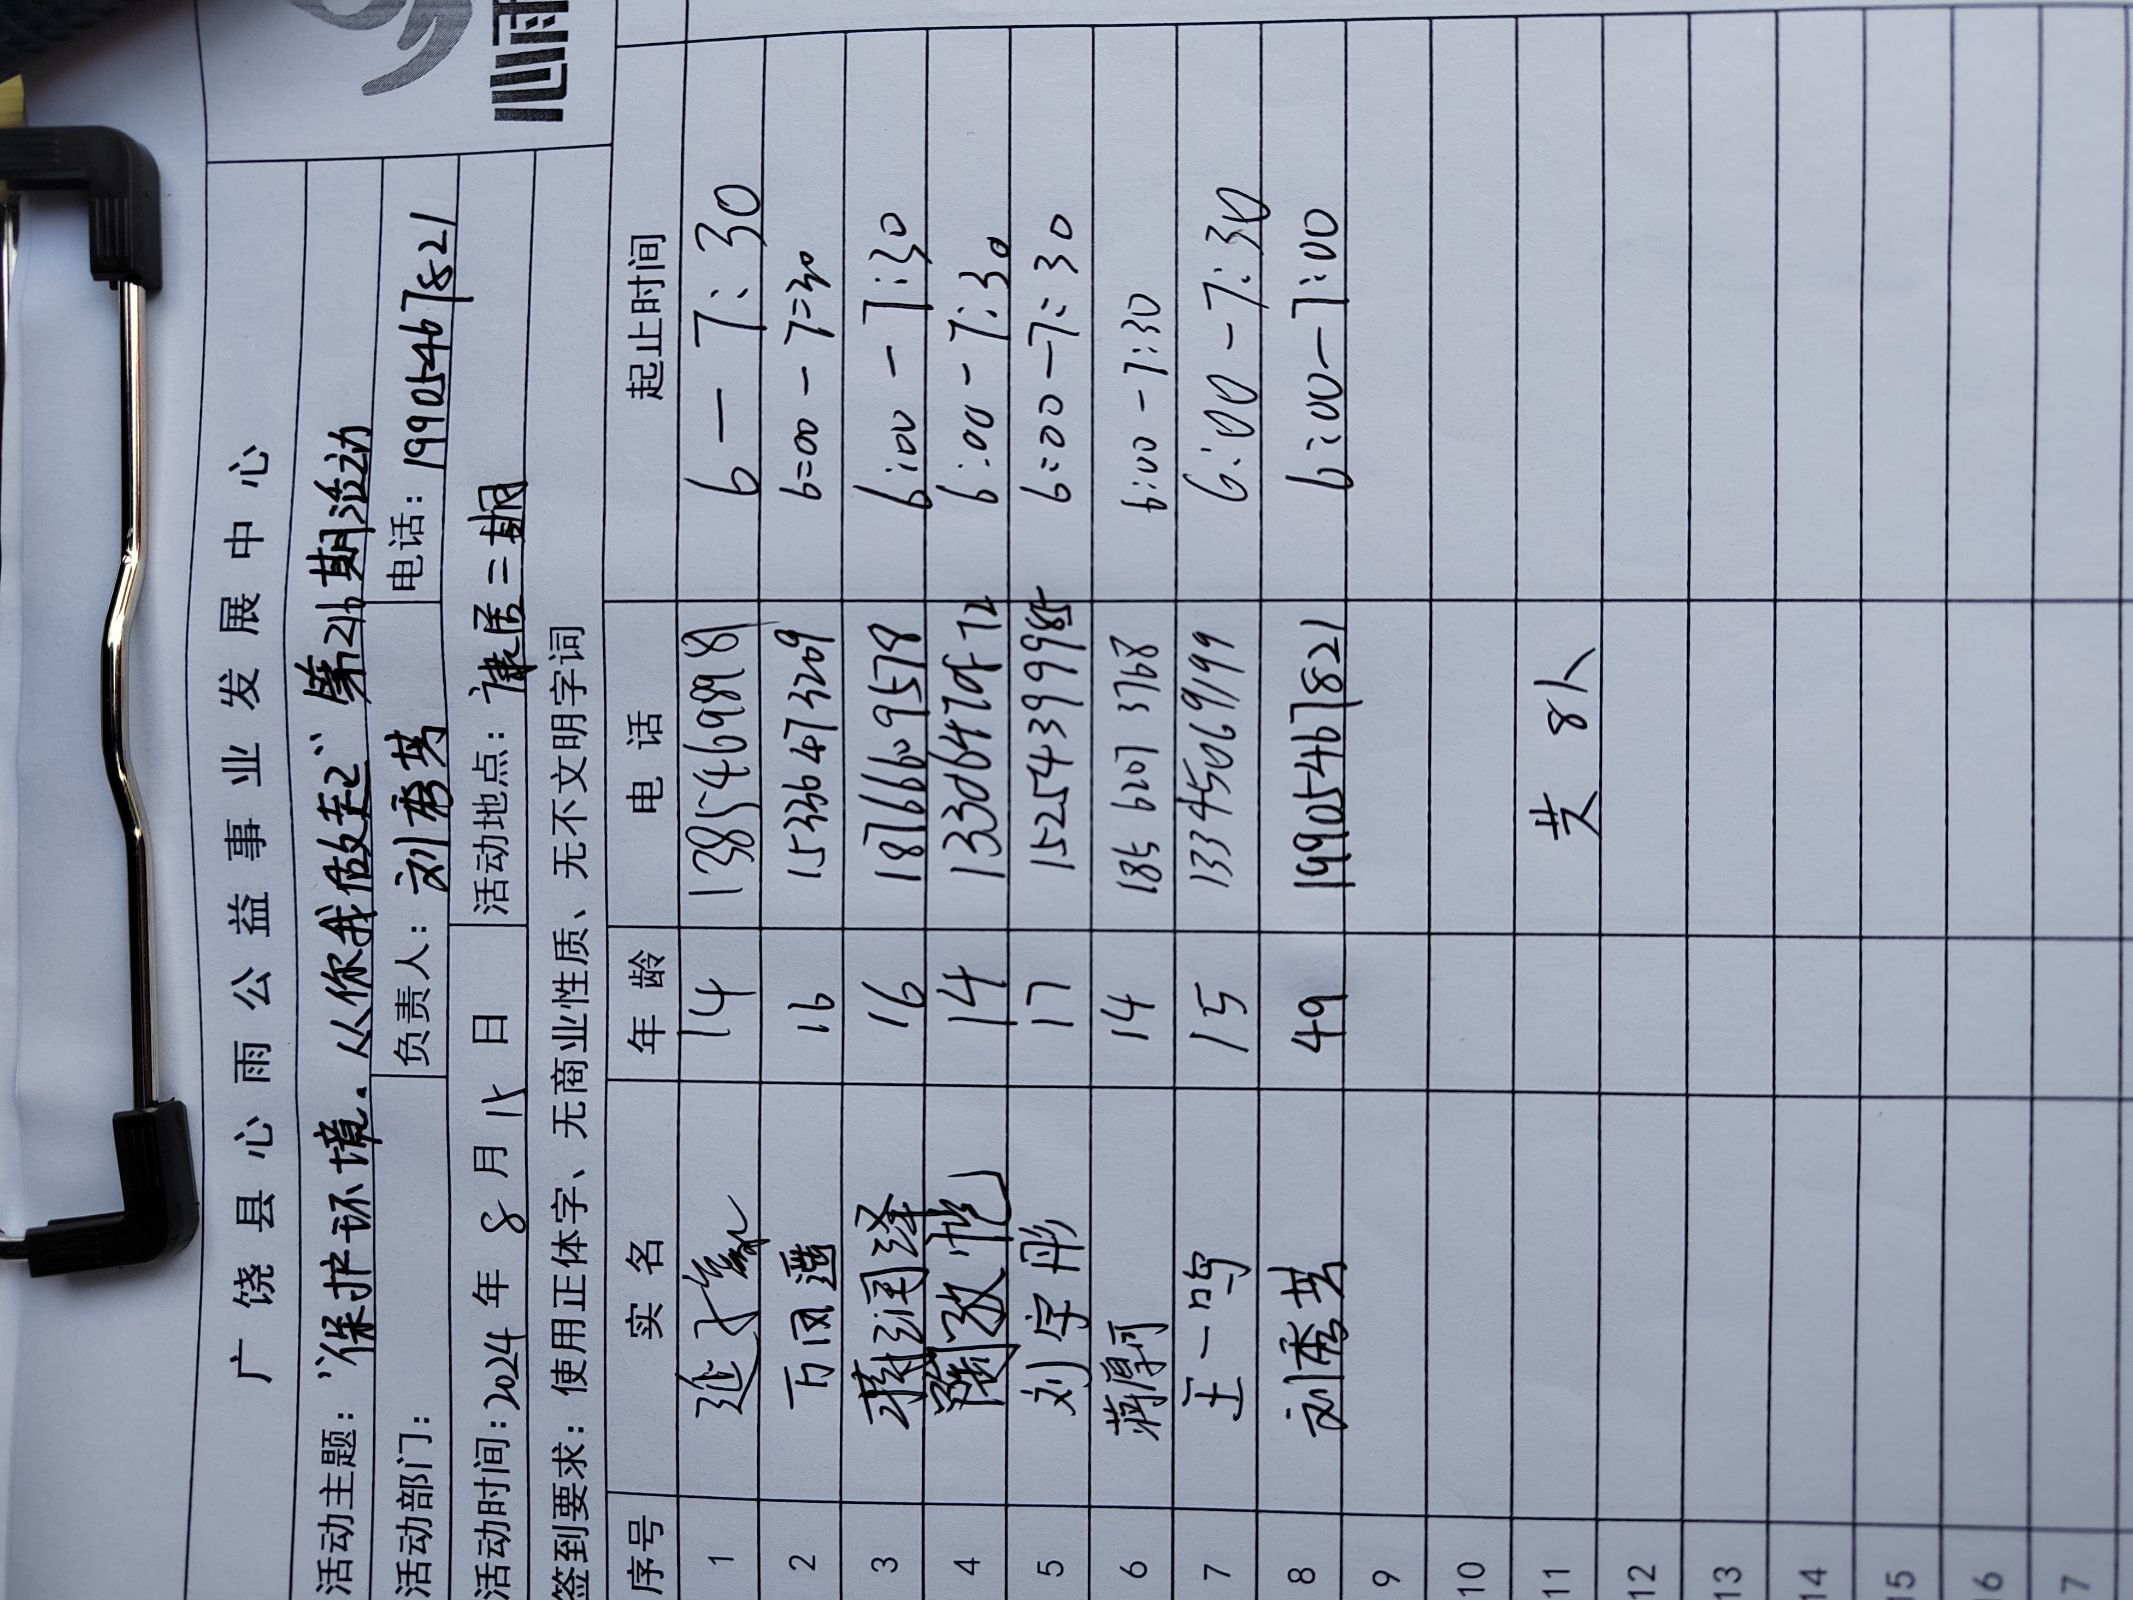 心雨
广饶县心雨公益事业发展中心
活动主题：“保护环境.从你我做起”第216期活动
活动部门： 负责人：刘秀芸 电话：19905467821
活动时间：2024年8月15日 活动地点：康居二期
签到要求：使用正体字、无商业性质、无不文明字词
序号 实名 年龄 电话 起止时间
1 延 14 6－7:30
2 16 15336473209 6:00－7:30
3 蒋润泽 16 18766609578 6:00－7:30
4 14 6:00－7:30
5 刘宇彤 17 6:00－7:30
6 蒋厚河 14 185 6207 3768 6:00－7:30
7 王一鸣 15 13345069199 6:00－7:30
8 刘秀芸 49 19905467821 6:00－7:00
9
10
11 共 8人
12
13
14
15
16
7